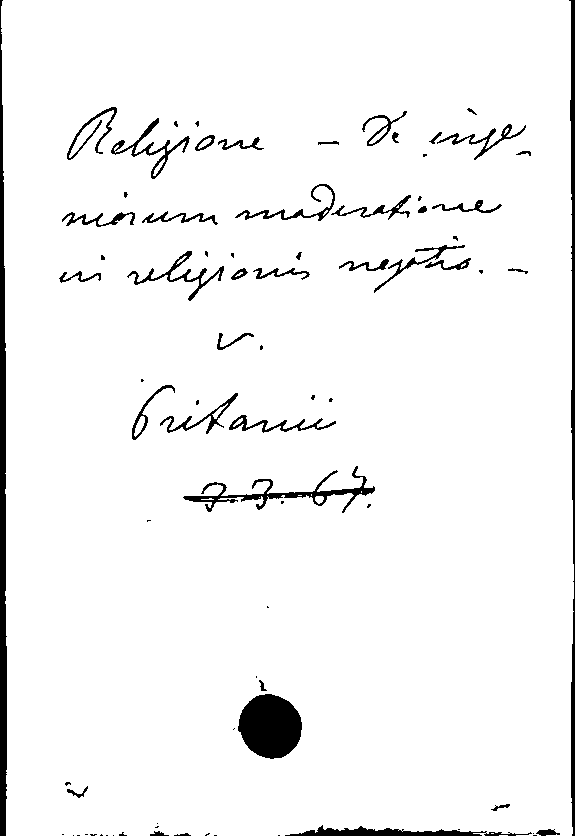 Religione - De inge-
niorum moderatione
in religionis negotio. -
v.
Pritanii
7.3.67.